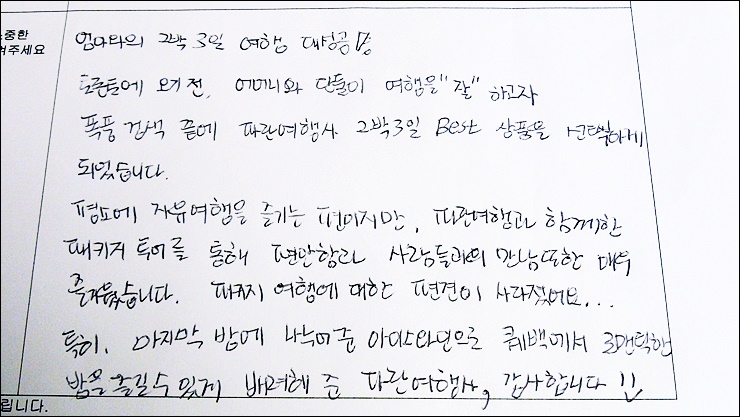 중한
려주세요
엄마와의 2박3일 여행 대성공
토론토에 오기 전, 어머니와 단둘이 여행을 "잘" 하고자
폭풍 검색 끝에 파란여행사 2박3일 Best 상품을 선택하게
되었습니다.
평소에 자유여행을 즐기는 편이지만, 파란여행과 함께한
패키지 투어를 통해 편안함과 사람들과의 만남 또한 매우
즐거웠습니다. 패키지 여행에 대한 편견이 사라졌어요...
특히, 마지막 밤에 나눠준 아이스와인으로 퀘백에서 로맨틱한
밤을 즐길 수 있게 배려해 준 파란여행사, 감사합니다 !!
립니다.